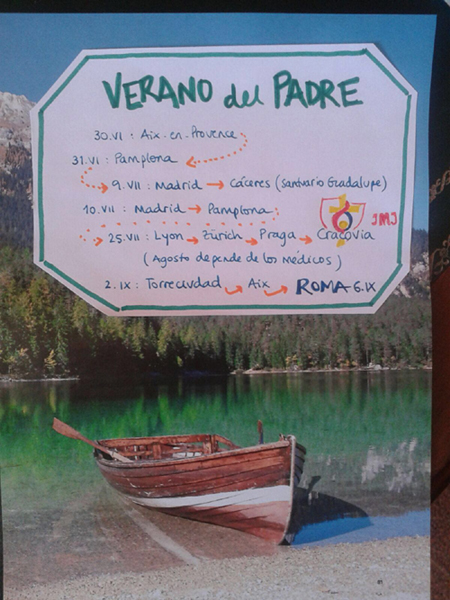 VERANO del PADRE
30.VI : Aix-en-Provence
31.VI : Pamplona
9.VII : Madrid → Cáceres (Santuario Guadalupe)
10.VII : Madrid → Pamplona
25.VII : Lyon → Zürich → Praga → Cracovia
JMJ
(Agosto depende de los médicos)
2.IX : Torreciudad → Aix → ROMA 6.IX